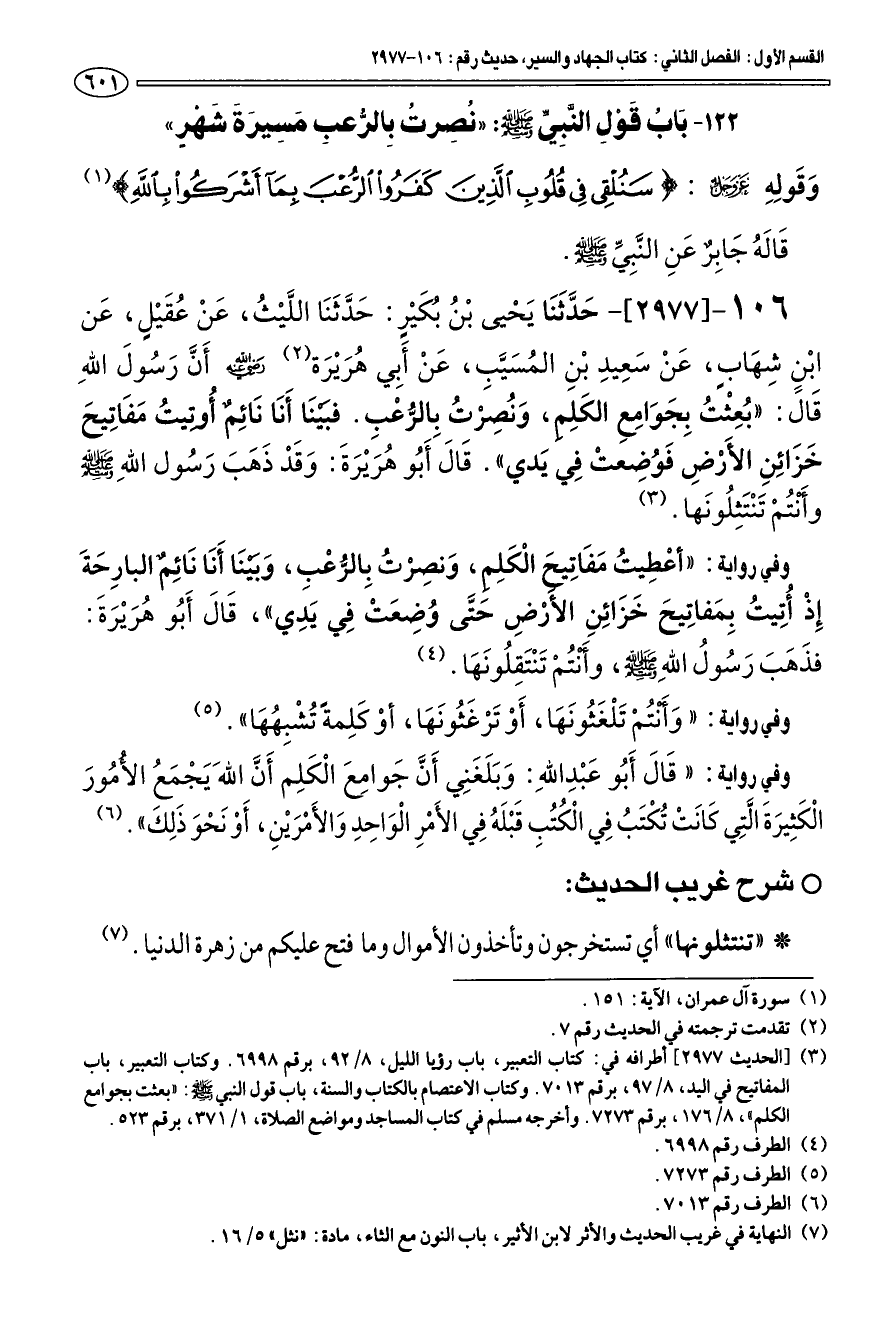 القسم الأول: الفصل الثاني: كتاب الجهاد والسير، حديث رقم: ١٠٦-٢٩٧٧
٦٠١
١٢٢- بَابُ قَوْلِ النَّبِيِّ ﷺ: «نُصِرتُ بِالرُّعبِ مَسِيرَةَ شَهْرٍ»
وَقَولِهِ عَزَّوَجَلَّ: ﴿سَنُلْقِى فِى قُلُوبِ ٱلَّذِينَ كَفَرُوا۟ ٱلرُّعْبَ بِمَآ أَشْرَكُوا۟ بِٱللَّهِ﴾(١)
قَالَهُ جَابِرٌ عَنِ النَّبِيِّ ﷺ.
١٠٦-[٢٩٧٧]- حَدَّثَنَا يَحْيى بْنُ بُكَيْرٍ: حَدَّثَنَا اللَّيْثُ، عَنْ عُقَيْلٍ، عَنِ
ابْنِ شِهَابٍ، عَنْ سَعِيدِ بْنِ المُسَيَّبِ، عَنْ أَبِي هُرَيْرَةَ(٢) رضي الله عنه أَنَّ رَسُولَ اللهِ
قَالَ: «بُعِثْتُ بِجَوَامِعِ الكَلِمِ، وَنُصِرْتُ بِالرُّعْبِ. فَبَيْنَا أَنَا نَائِمٌ أُوتِيتُ مَفَاتِيحَ
خَزَائِنِ الأَرْضِ فَوُضِعتْ فِي يَدي». قَالَ أَبُو هُرَيْرَةَ: وَقَدْ ذَهَبَ رَسُول اللهِ ﷺ
وأَنْتُمْ تَنْتَثِلُونَها. (٣)
وفي رواية: «أعْطِيتُ مَفَاتِيحَ الْكَلِمِ، وَنصِرْتُ بِالرُّعْبِ، وَبَيْنَا أَنَا نَائِمٌ البارِحَةَ
إِذْ أُتِيتُ بِمَفاتِيحَ خَزَائِنِ الأَرْضِ حَتَّى وُضِعَتْ فِي يَدِي»، قَالَ أَبُو هُرَيْرَةَ:
فذَهَبَ رَسُولُ اللهِ ﷺ، وأَنْتُمْ تَنْتَقِلُونَهَا. (٤)
وفي رواية: «وَأَنْتُمْ تَلْغَثُونَهَا، أَوْ تَرْغَثُونَهَا، أوْ كَلِمةً تُشْبِهُهَا». (٥)
وفي رواية: «قَالَ أَبُو عَبْدِاللهِ: وَبَلَغَنِي أَنَّ جَوامِعَ الْكَلِم أَنَّ اللهَ يَجْمَعُ الأُمُورَ
الْكَثِيرَةَ الَّتِي كَانَتْ تُكْتَبُ فِي الْكُتُبِ قَبْلَهُ فِي الأَمْرِ الْوَاحِدِ وَالأَمْرَيْنِ، أَوْ نَحْوَ ذَلِكَ». (٦)
○ شرح غريب الحديث:
* «تنتثلونها» أي تستخرجون وتأخذون الأموال وما فتح عليكم من زهرة الدنيا. (٧)
(١) سورة آل عمران، الآية: ١٥١.
(٢) تقدمت ترجمته في الحديث رقم ٧.
(٣) [الحديث ٢٩٧٧] أطرافه في: كتاب التعبير، باب رؤيا الليل، ٨/ ٩٢، برقم ٦٩٩٨. وكتاب التعبير، باب
المفاتيح في اليد، ٨/ ٩٧، برقم ٧٠١٣. وكتاب الاعتصام بالكتاب والسنة، باب قول النبي ﷺ: «بعثت بجوامع
الكلم»، ٨/ ١٧٦، برقم ٧٢٧٣. وأخرجه مسلم في كتاب المساجد ومواضع الصلاة، ١/ ٣٧١، برقم ٥٢٣.
(٤) الطرف رقم ٦٩٩٨.
(٥) الطرف رقم ٧٢٧٣.
(٦) الطرف رقم ٧٠١٣.
(٧) النهاية في غريب الحديث والأثر لابن الأثير، باب النون مع الثاء، مادة: «نثل» ٥/ ١٦.